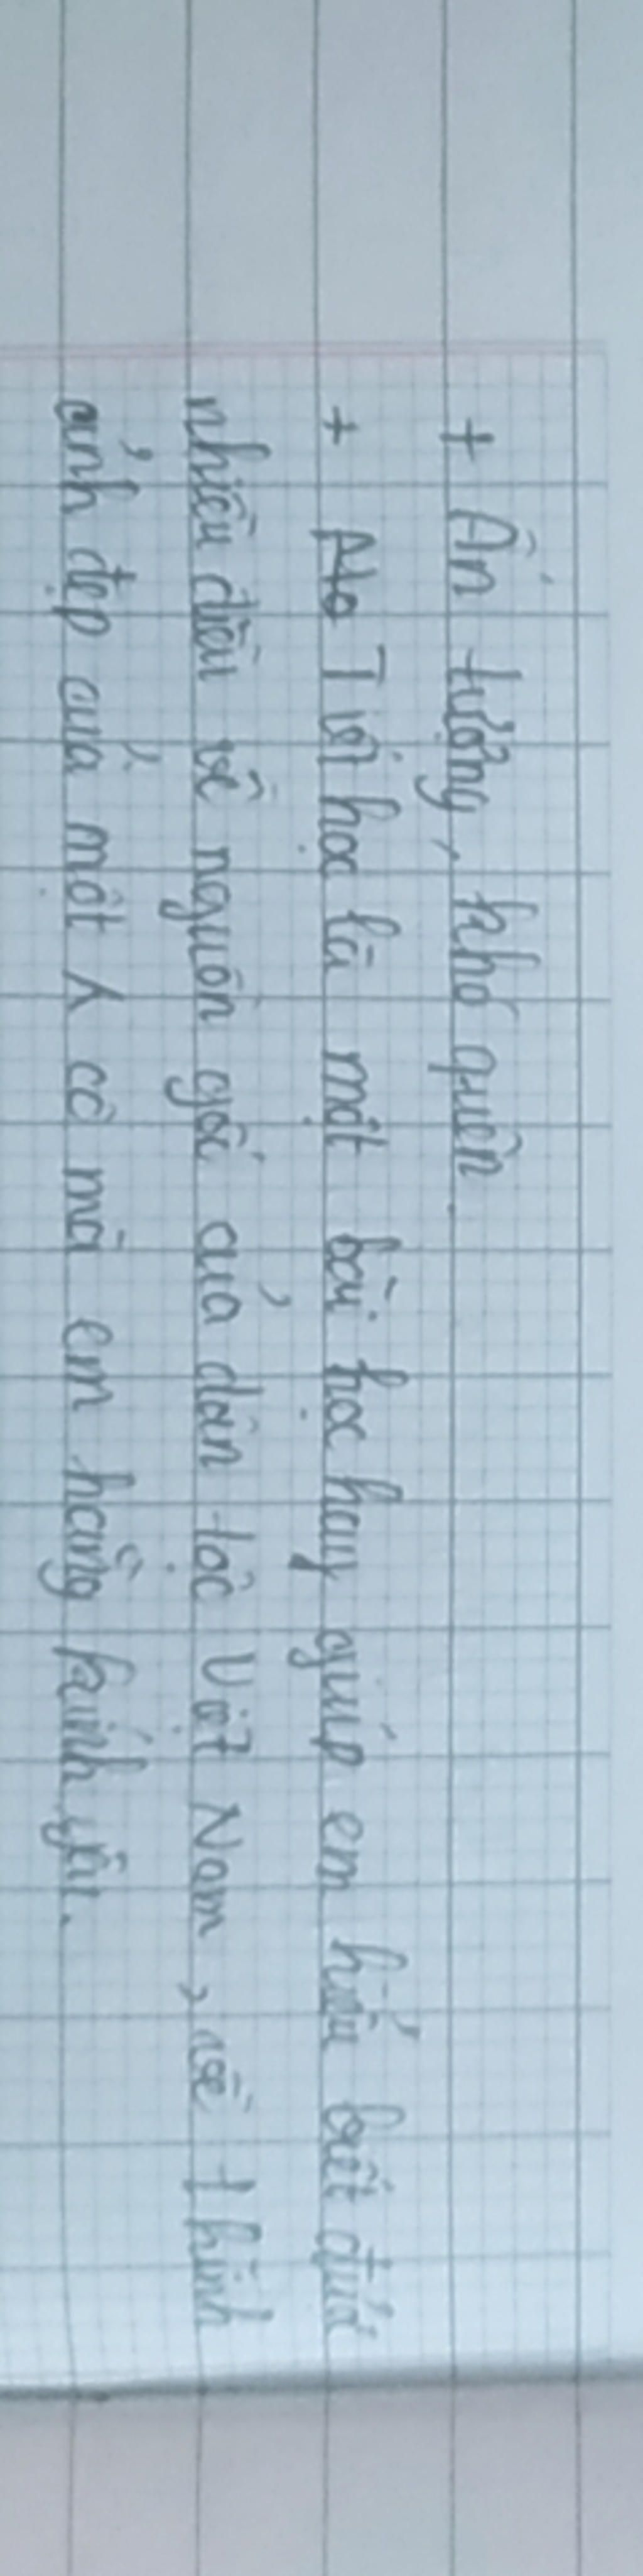 + Ấn tượng, khó quên.
+ Tiết học là một bài học hay giúp em hiểu biết được
nhiều điều về nguồn gốc của dân tộc Việt Nam, về 1 hình
ảnh đẹp của một cô mà em hằng kính yêu.